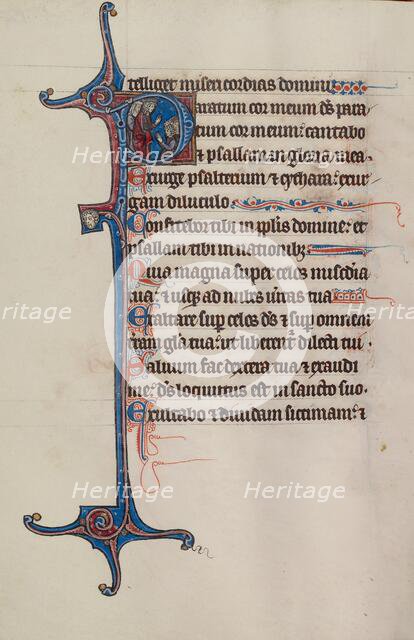 telliget misericordias domini
Paratum cor meum ds para
tum cor meum: cantabo
& psallam in gloria mea.
Exurge psalterium & cythara: exur
gam diluculo
Confitebor tibi in pplis domine: et
psallam tibi in nationibz
Quia magna super celos misedia
tua: & usqz ad nubes ueritas tua
Exaltare sup celos ds & sup omnem
terram gloria tua: ut liberentr dilecti tui
Saluum fac dextera tua & exaudi
me: ds locutus est in sancto suo.
Exultabo & diuidam siccimam: &
Heritage
Heritage
Heritage
Heritage
Heritage
Heritage